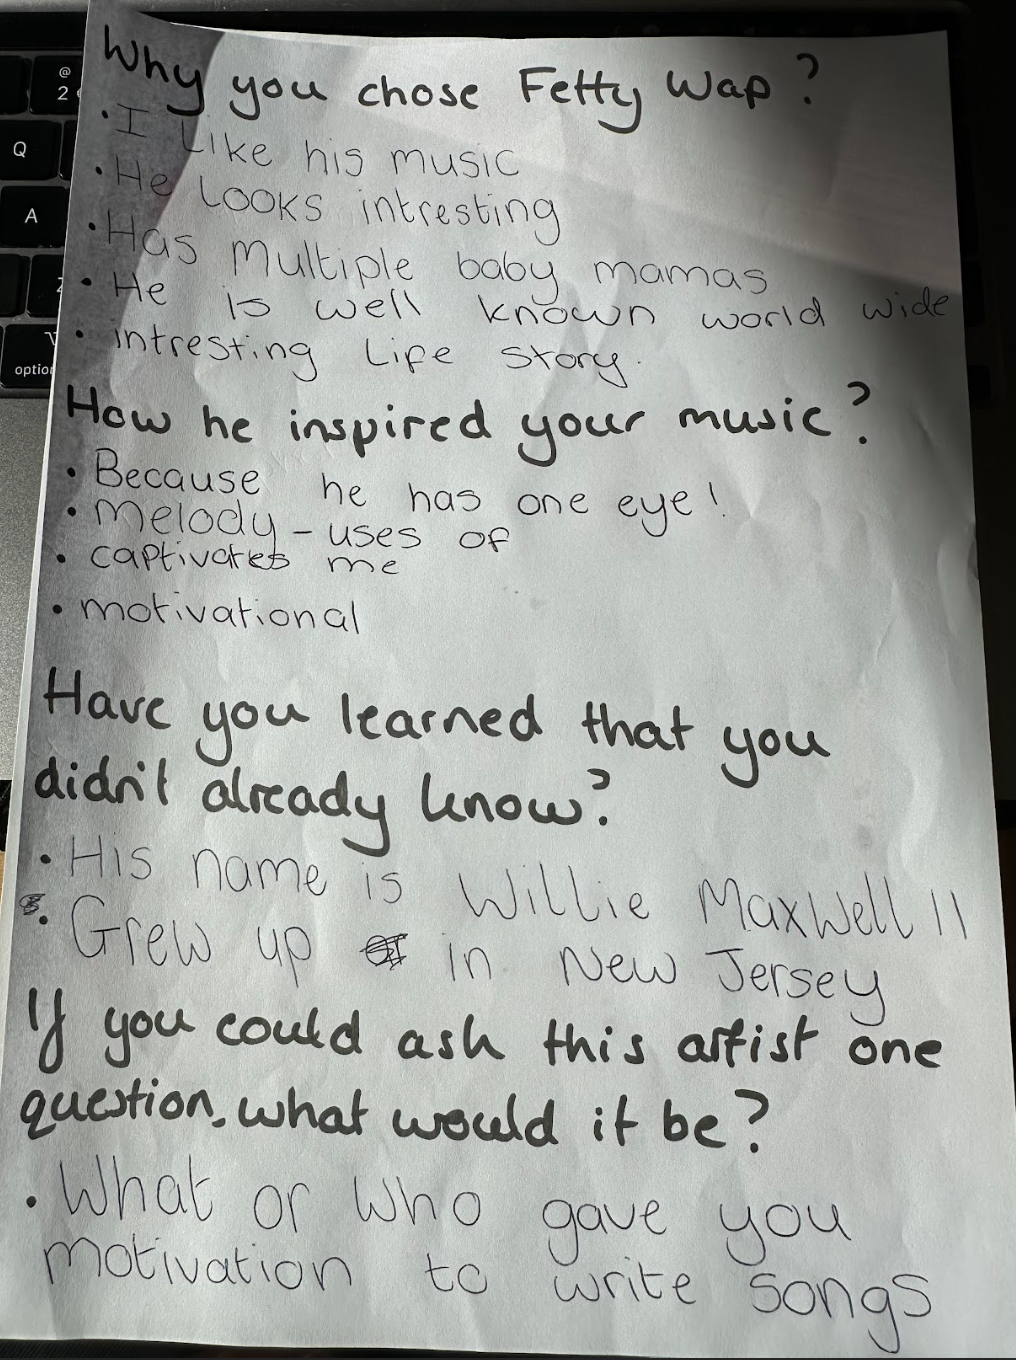 Why you chose Fetty Wap?
• I Like his music
• He Looks intresting
• Has Multiple baby mamas
• He is well known world wide
• intresting Life story.
How he inspired your music?
• Because he has one eye!
• melody - uses of
• captivates me
• motivational
Have you learned that you
didn't already know?
• His name is Willie Maxwell II
• Grew up in New Jersey
If you could ask this artist one
question, what would it be?
• What or Who gave you
motivation to write songs
@
2
Q
A
Z
option